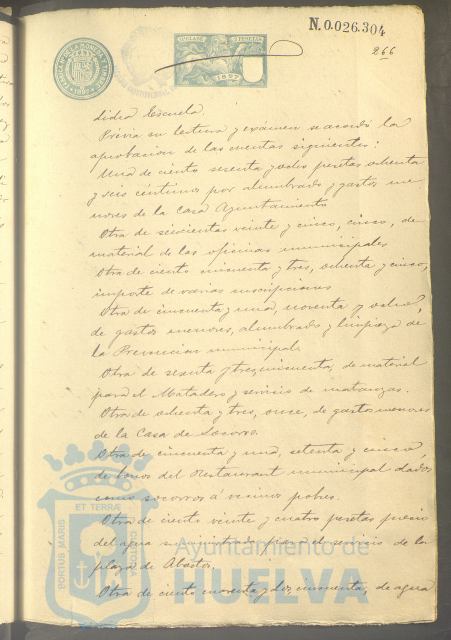 N.0.026.304
266
1897
dida Escuela
Prévia su lectura y exámen se acordó la
aprobacion de las cuentas siguientes:
Una de ciento sesenta y ocho pesetas ochenta
y seis céntimos por alumbrado y gastos me
nores de la Casa Ayuntamiento
Otra de seiscientas veinte y cinco, cinco, de
material de las oficinas municipales
Otra de ciento cincuenta y tres, ochenta y cinco,
importe de varias suscripciones
Otra de cincuenta y una, noventa y ocho,
de gastos menores, alumbrado y limpieza de
la Prevencion municipal.
Otra de sesenta y tres, cincuenta, de material
para el Matadero y servicio de matanzas.
Otra de ochenta y tres, once, de gastos menores
de la Casa de Socorro.
Otra de cincuenta y una, setenta y cinco,
de bonos del Restaurant municipal dados
como socorros á vecinos pobres.
Otra de ciento veinte y cuatro pesetas precio
del agua suministrada para el servicio de la
plaza de Abastos.
Otra de ciento noventa y dos, cincuenta, de agua
PORTUS MARIS ET TERRÆ CUSTODIA
Ayuntamiento de
HUELVA